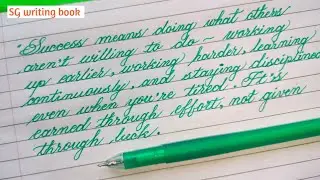 SG writing book
"Success means doing what others
aren't willing to do ~ working
up earlier, working harder, learning
continuously, and staying disciplined
even when you're tired. It's
earned through effort, not given
through luck.